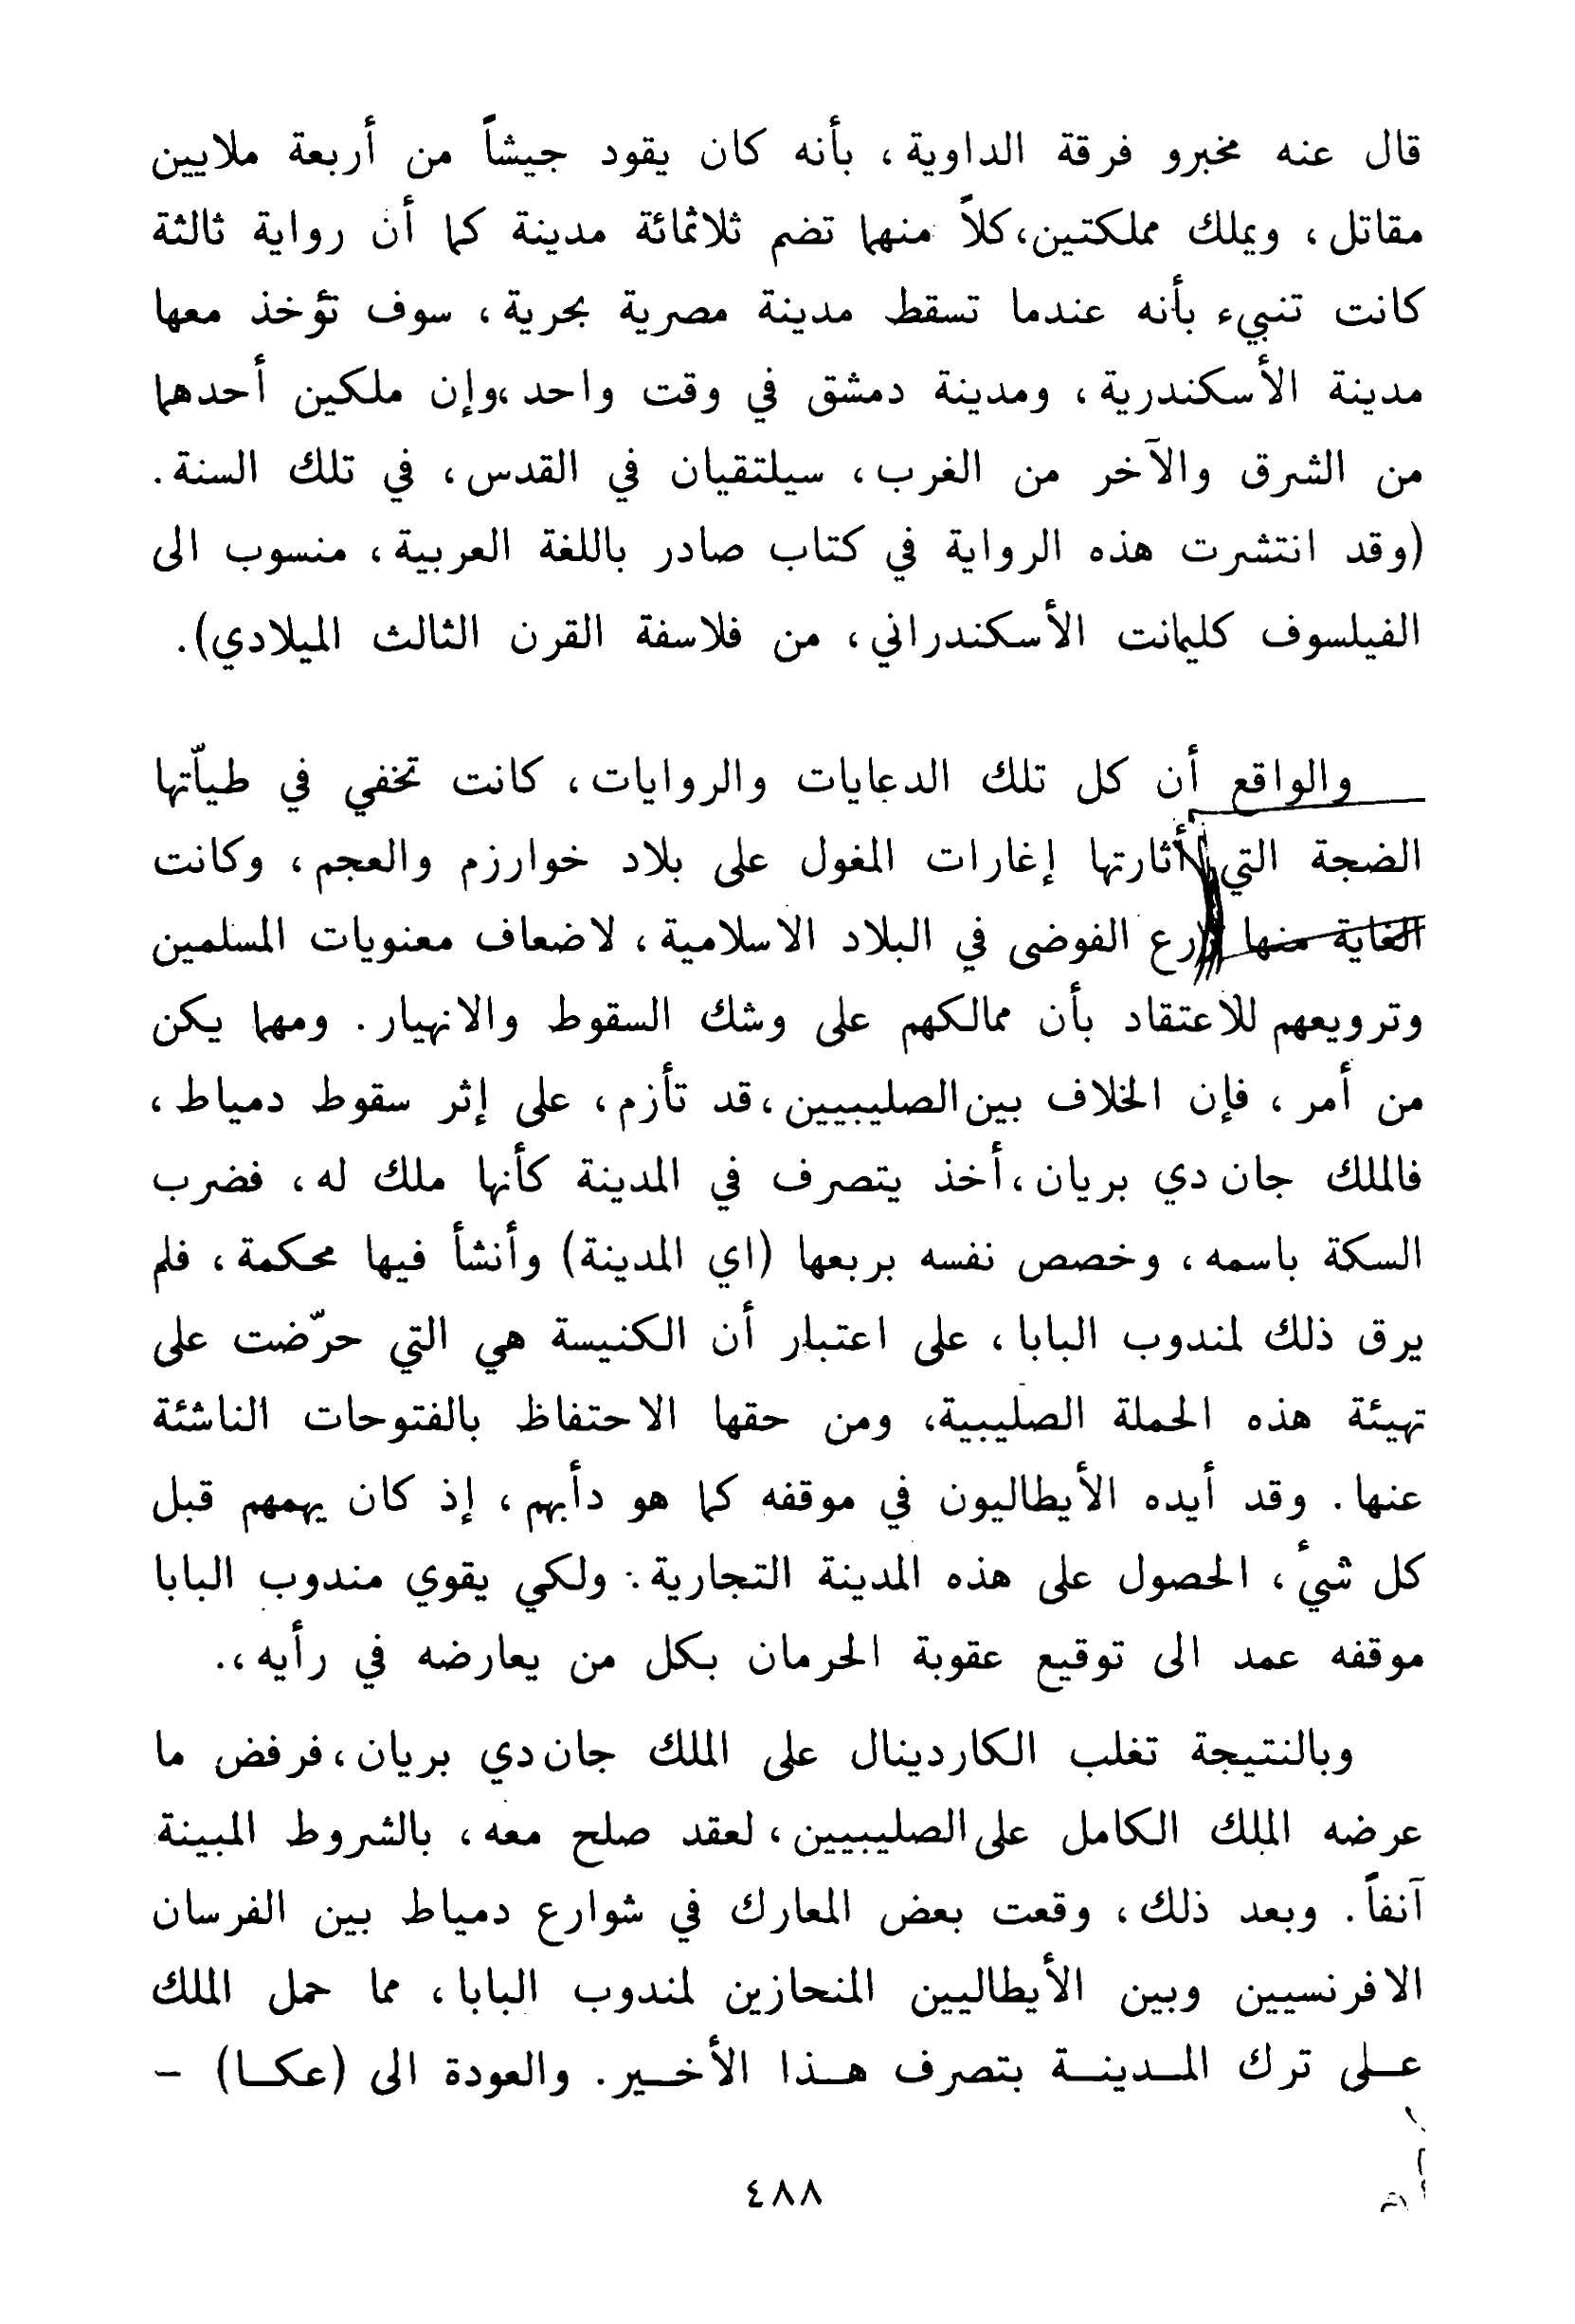 قال عنه مخبرو فرقة الداوية، بأنه كان يقود جيشاً من أربعة ملايين
مقاتل، ويملك مملكتين، كلاً منهما تضم ثلاثمائة مدينة كما أن رواية ثالثة
كانت تنبيء بأنه عندما تسقط مدينة مصرية بحرية، سوف تؤخذ معها
مدينة الأسكندرية، ومدينة دمشق في وقت واحد، وإن ملكين أحدهما
من الشرق والآخر من الغرب، سيلتقيان في القدس، في تلك السنة.
(وقد انتشرت هذه الرواية في كتاب صادر باللغة العربية، منسوب الى
الفيلسوف كليمانت الأسكندراني، من فلاسفة القرن الثالث الميلادي).
والواقع أن كل تلك الدعايات والروايات، كانت تخفي في طياّتها
الضجة التي أثارتها إغارات المغول على بلاد خوارزم والعجم، وكانت
الغاية منها زرع الفوضى في البلاد الاسلامية، لاضعاف معنويات المسلمين
وترويعهم للاعتقاد بأن ممالكهم على وشك السقوط والانهيار. ومهما يكن
من أمر، فإن الخلاف بين الصليبيين، قد تأزم، على إثر سقوط دمياط،
فالملك جان دي بريان، أخذ يتصرف في المدينة كأنها ملك له، فضرب
السكة باسمه، وخصص نفسه بربعها (اي المدينة) وأنشأ فيها محكمة، فلم
يرق ذلك لمندوب البابا، على اعتبار أن الكنيسة هي التي حرّضت على
تهيئة هذه الحملة الصليبية، ومن حقها الاحتفاظ بالفتوحات الناشئة
عنها. وقد أيده الأيطاليون في موقفه كما هو دأبهم، إذ كان يهمهم قبل
كل شيء، الحصول على هذه المدينة التجارية. ولكي يقوي مندوب البابا
موقفه عمد الى توقيع عقوبة الحرمان بكل من يعارضه في رأيه،.
وبالنتيجة تغلب الكاردينال على الملك جان دي بريان، فرفض ما
عرضه الملك الكامل على الصليبيين، لعقد صلح معه، بالشروط المبينة
آنفاً. وبعد ذلك، وقعت بعض المعارك في شوارع دمياط بين الفرسان
الافرنسيين وبين الأيطاليين المنحازين لمندوب البابا، مما حمل الملك
عـلى ترك المـدينـة بتصرف هـذا الأخـير. والعودة الى (عكـا) -
٤٨٨